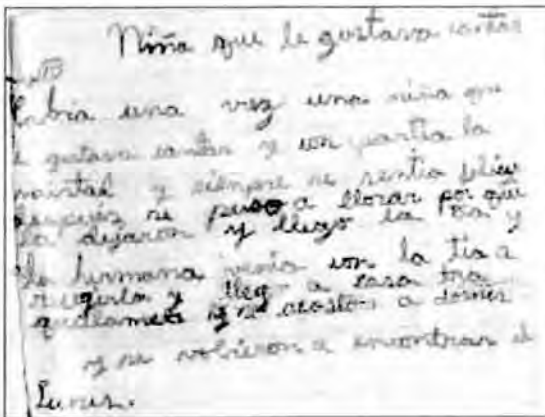 Niña que le gustava cantar
abia una vez una niña que
le gustava cantar y con partia la
maistad y siempre se sentia felis
despues se puso a llorar por que
la dejaron y llego la tia y
la hermana venia con la tia a
recogerla y llego a casa tra
quilamete y se acosto a dormir
y se volvieron a encontrar el
Lunes.